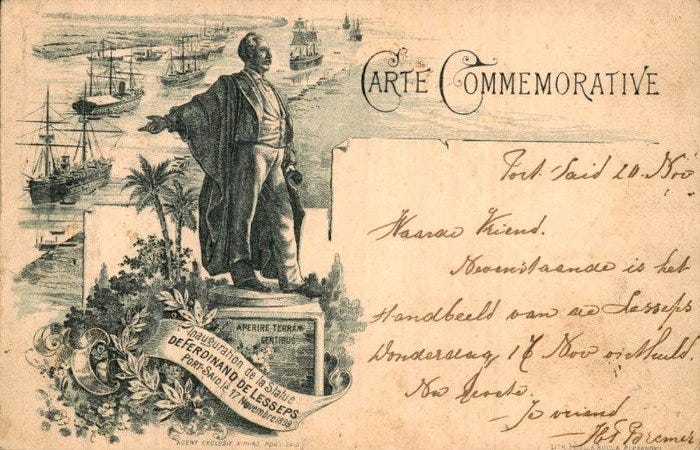 CARTE COMMEMORATIVE
Port Said 20 Nov
Waarde Vriend.
Nevenstaande is het
standbeeld van de Lesseps
Donderdag 17 Nov onthuld.
Na Groete.
Je vriend
Bremer
APERIRE TERRAM
GENTIBUS
Inauguration de la Statue
DE FERDINAND DE LESSEPS
PORT-SAID, le 17 Novembre 1899
AGENT EXCLUSIF ALPHAS, PORT-SAID
LITH.